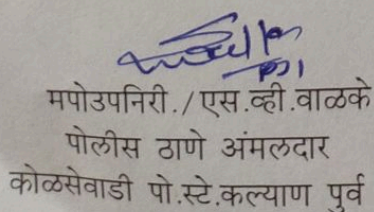 मपोउपनिरी./एस.व्ही.वाळके
पोलीस ठाणे अंमलदार
कोळसेवाडी पो.स्टे.कल्याण पुर्व